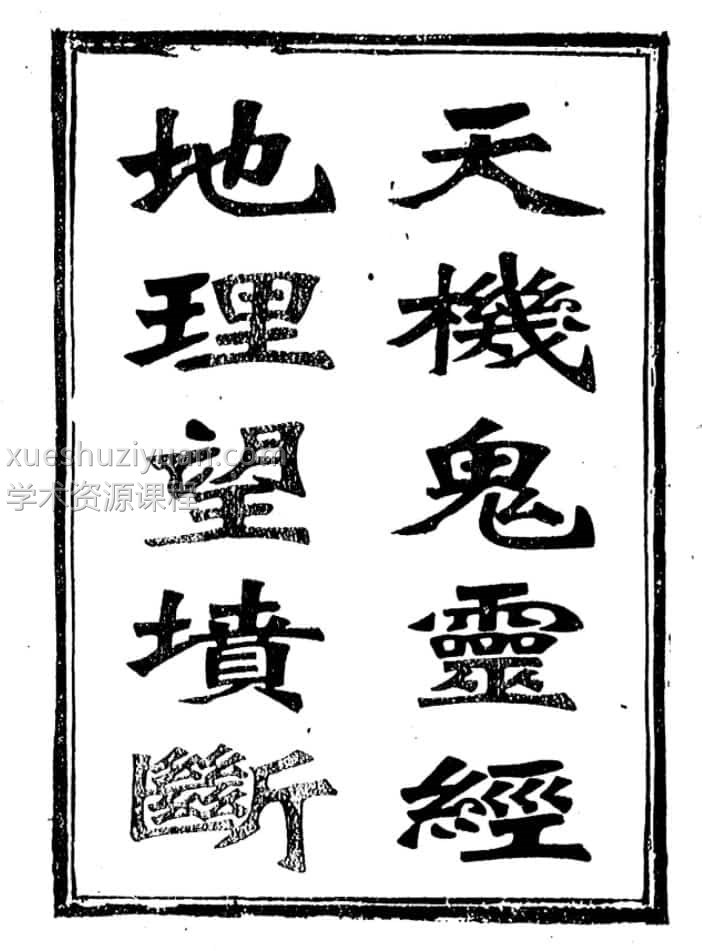 天機鬼靈經
地理望墳斷
xueshuziyuan.com
学术资源课程